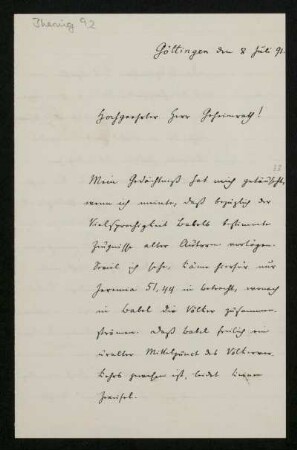 Jhering 92
Göttingen den 8 Juli 91.
Hochgeehrter Herr Geheimrath!
Mein Gedächtniß hat mich getäuscht,
wenn ich meinte, daß bezüglich der
Vielsprachigkeit Babels bestimmte
Zeugnisse alter Autoren vorlägen.
Soviel ich sehe, käme hierfür nur
Jeremia 51,44 in betracht, wonach
in Babel die Völker zusammen-
strömen. Daß Babel freilich ein
uralter Mittelpunct des Völkerver-
kehrs gewesen ist, leidet keinen
Zweifel.